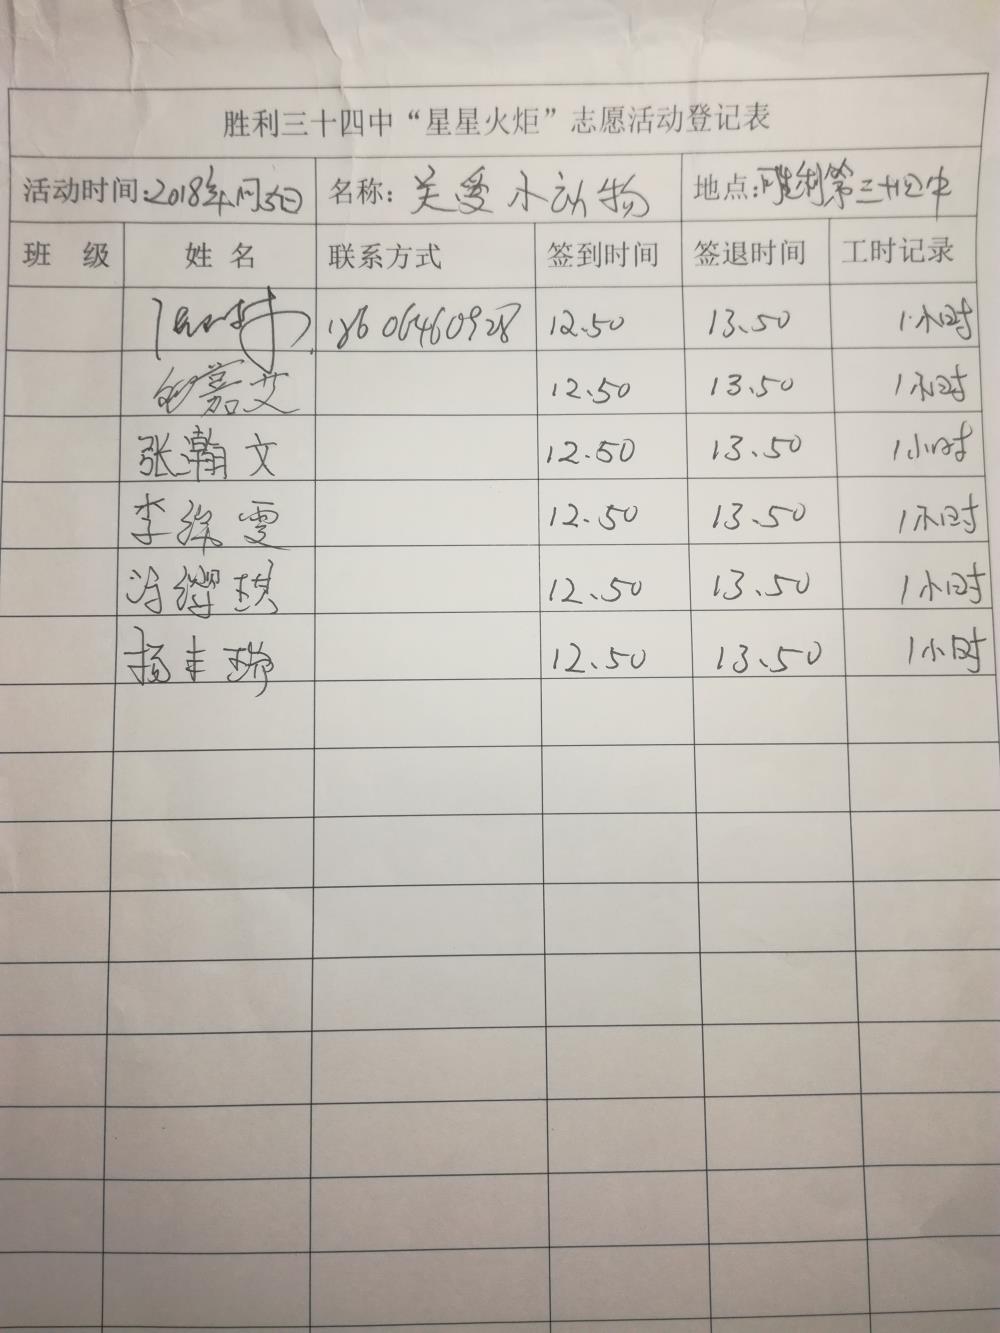 胜利三十四中“星星火炬”志愿活动登记表
活动时间:2018年11月5日 名称: 关爱小动物 地点:胜利第三十四中
班 级 姓 名 联系方式 签到时间 签退时间 工时记录
18606460928 12.50 13.50 1小时
嘉艾 12.50 13.50 1小时
张瀚文 12.50 13.50 1小时
李 雯 12.50 13.50 1小时
琪 12.50 13.50 1小时
杨丰瑞 12.50 13.50 1小时